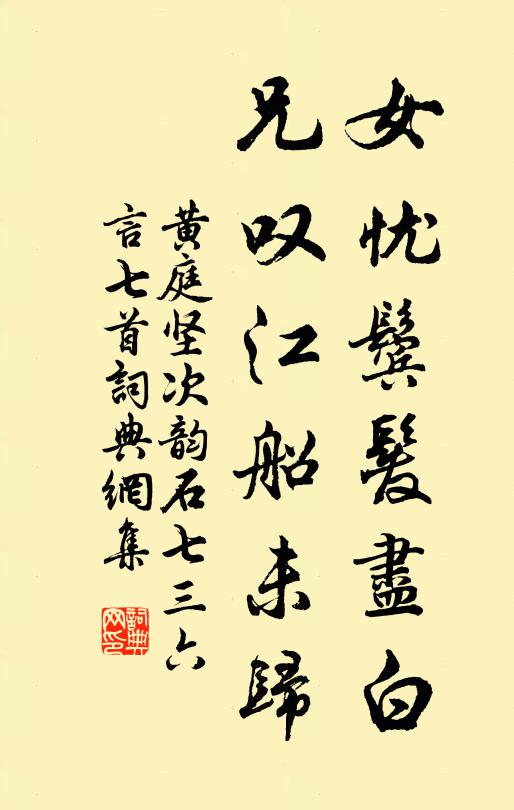 女忧鬓髮盡白
兄叹江船未歸
黄庭坚次韵石七三六
言七首詞典網集
詞典网印